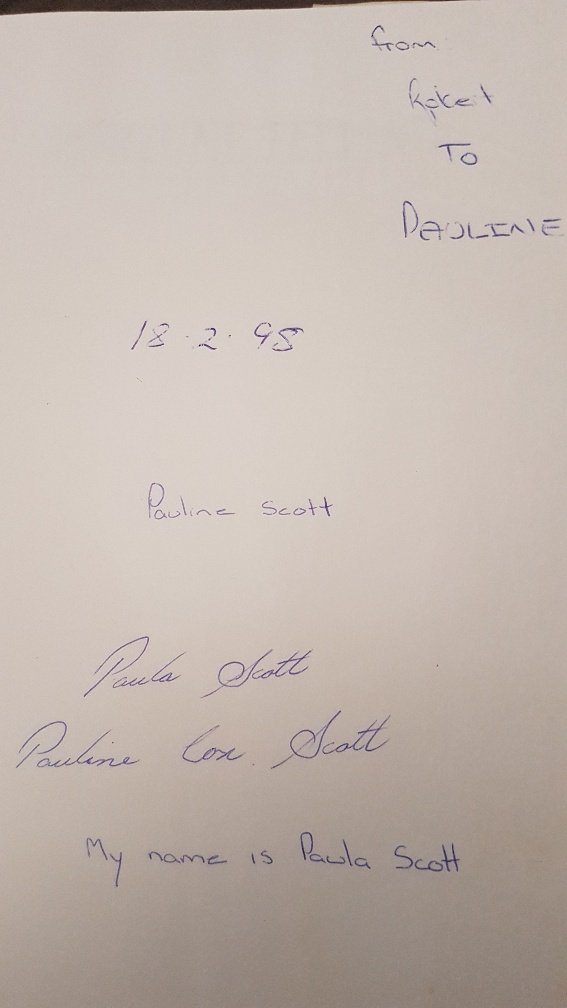 from
To
PAULINE
18.2.95
Pauline Scott
Paula Scott
Pauline Cox. Scott
My name is Paula Scott